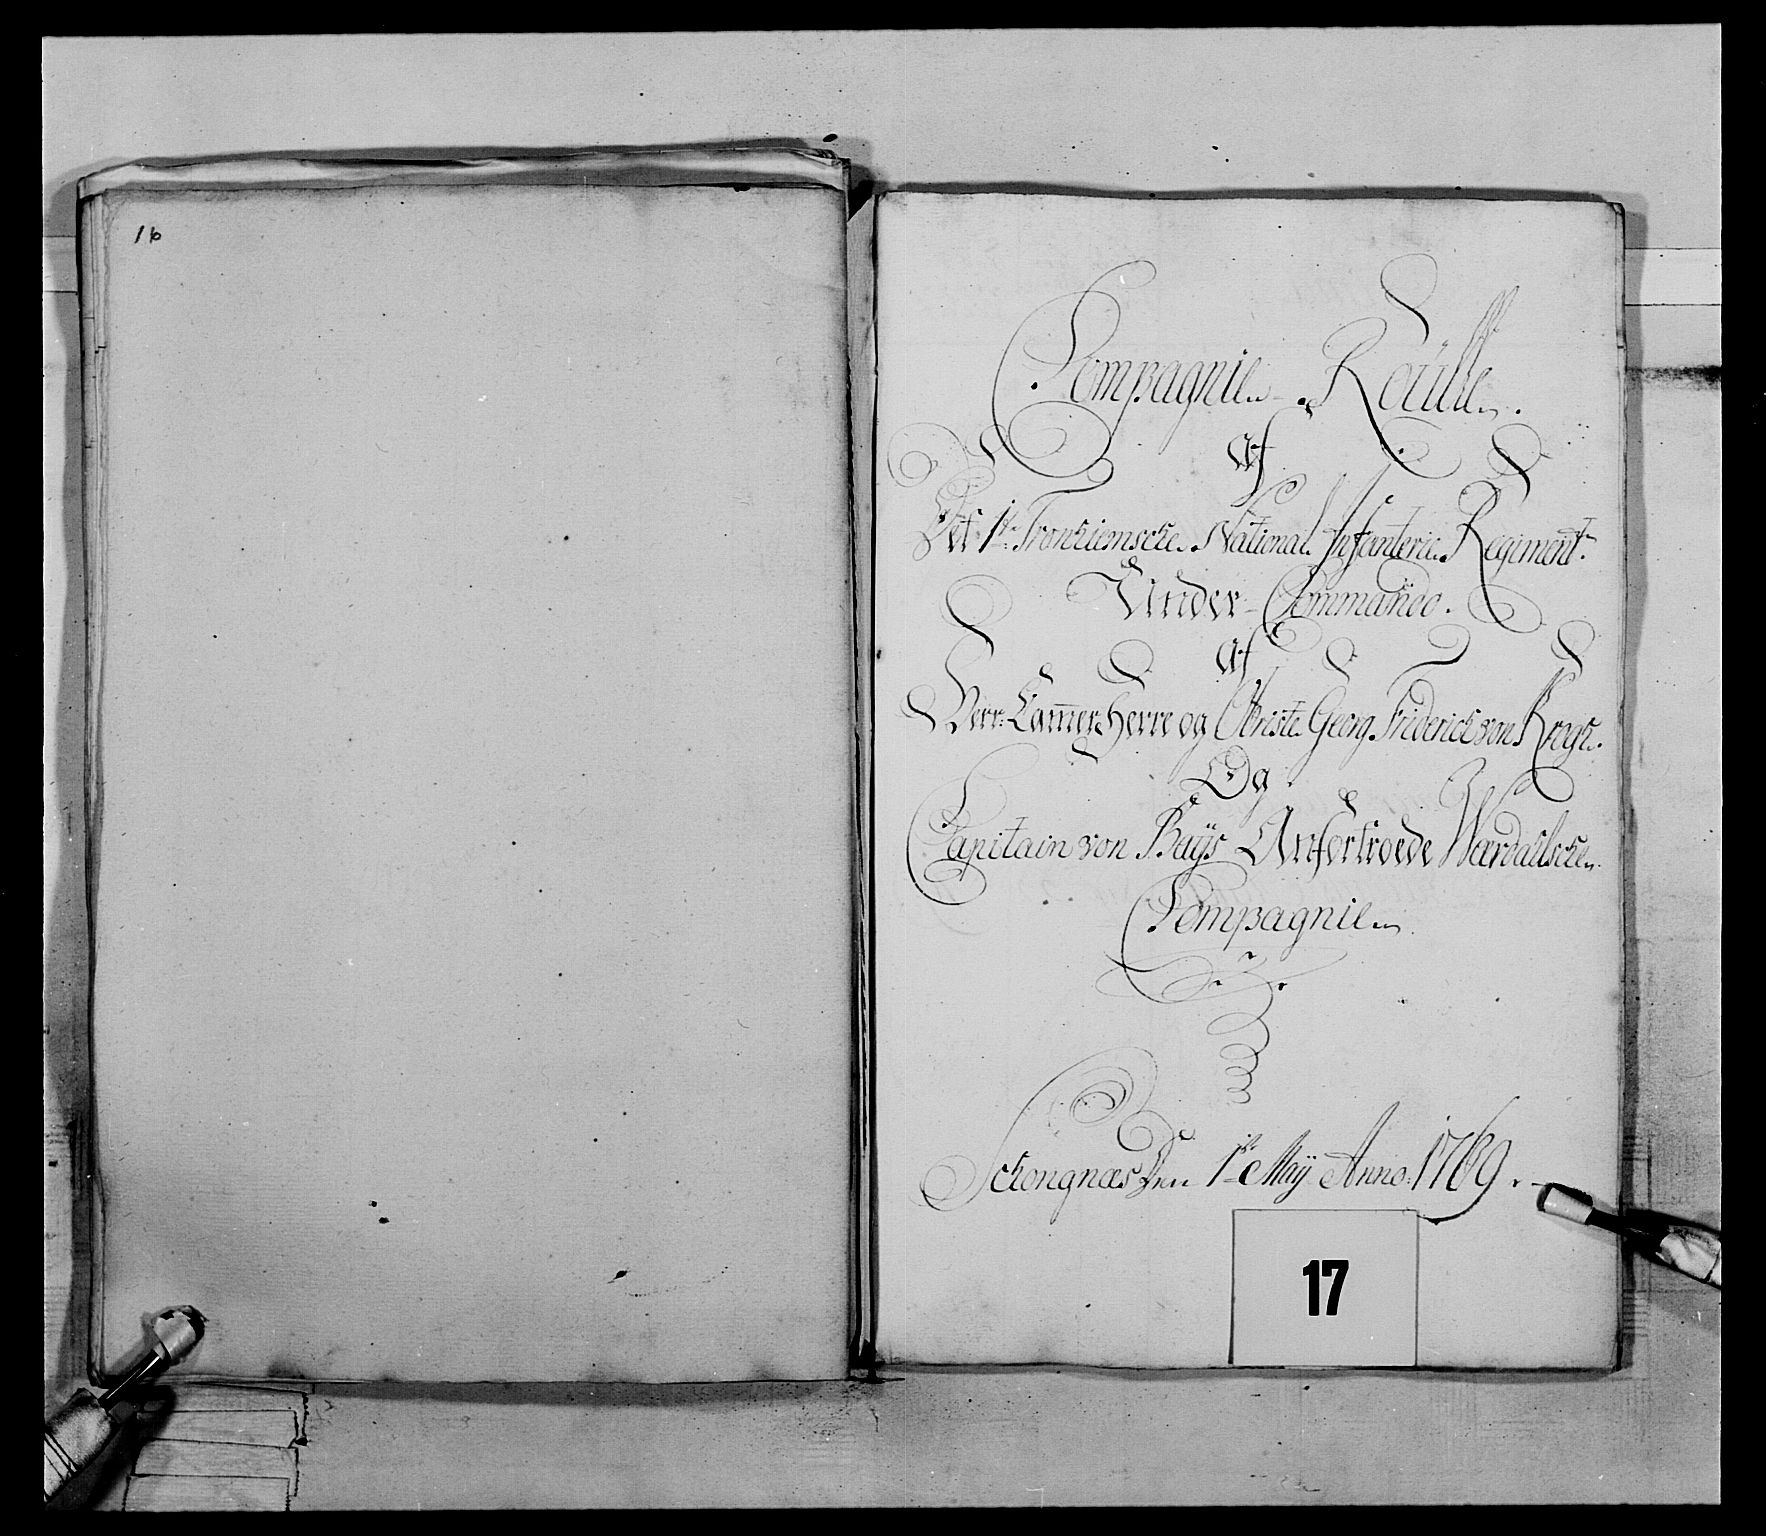 16
Compagnie Roulle.
af
Det 1te Tronhiemske National Infanterie Regiment.
Under Commando.
af
Herr Cam̅er Herre og Obriste Georg Friderich von Krogh.
Og
Capitain von Anfortroede Werdahlske
Compagnie
Schongnæs Den 1te Maij Anno: 1769.
17